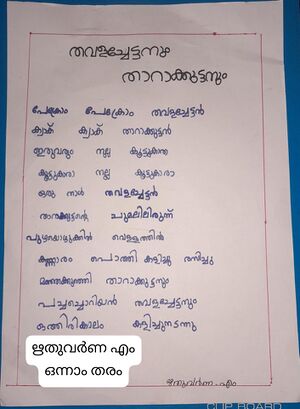 തവളച്ചേട്ടനും
താറാക്കുട്ടനും
പേക്രോം പേക്രോം തവളച്ചേട്ടൻ
ക്വാക് ക്വാക് താറാക്കുട്ടൻ
ഇരുവരും നല്ല കൂട്ടുകാരു
കൂട്ടുകാരാ നല്ല കൂട്ടുകാരാ
ഒരു നാൾ തവളച്ചേട്ടൻ
താറാക്കുട്ടന്റെ ചുമലിലിരുന്ന്
പുഴയൊഴുക്കിൽ വെള്ളത്തിൽ
കണ്ണാരം പൊത്തി കളിച്ചു രസിച്ചു
മഞ്ഞക്കുഞ്ഞി താറാക്കുട്ടനും
പച്ചച്ചൊറിയൻ തവളച്ചേട്ടനും
ഒത്തിരികാലം കളിച്ചുനടന്നു
ഋതുവർണ എം
ഒന്നാം തരം
ഋതുവർണ - എം
CLIP BOARD